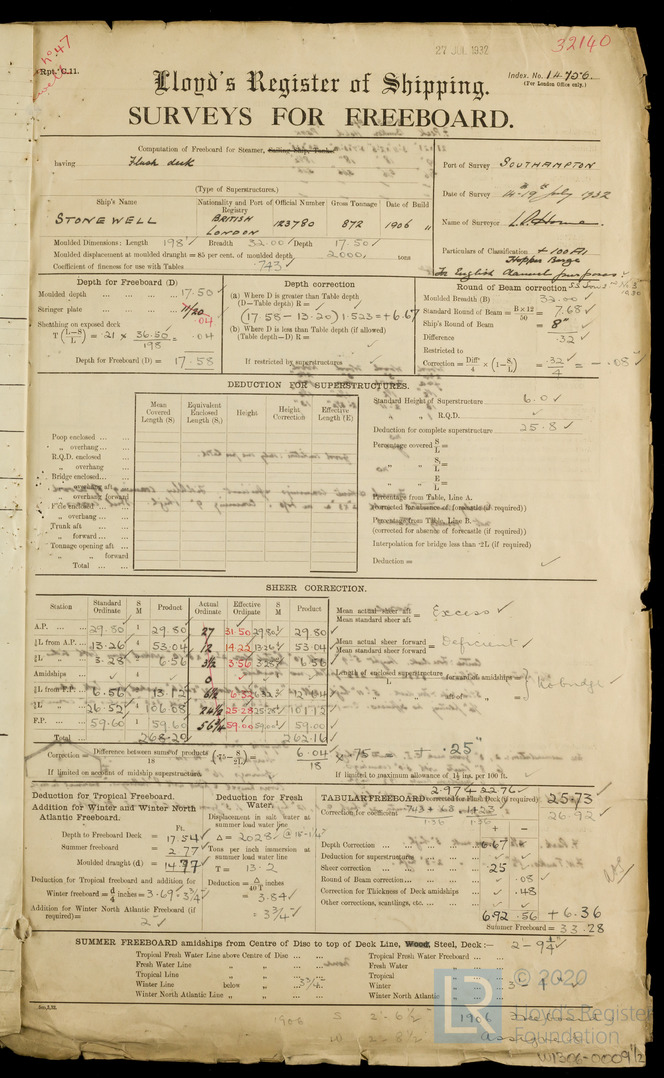 27 JUL 1932
32140
Rpt. C.11.
Lloyd's Register of Shipping.
Index. No. 14756.
(For London Office only.)
SURVEYS FOR FREEBOARD.
Computation of Freeboard for Steamer, Sailing Ship, Tanker
having Flush deck
(Type of Superstructures.)
Port of Survey SOUTHAMPTON
Date of Survey 4th-19th July 1932
Name of Surveyor
Particulars of Classification +100A1
Hopper Barge
For English Channel purposes
Ship's Name
Nationality and Port of Registry
Official Number
Gross Tonnage
Date of Build
STONEWELL
BRITISH
LONDON
123780
872
1906
Moulded Dimensions: Length 198' Breadth 32.00 Depth 17.50
Moulded displacement at moulded draught = 85 per cent. of moulded depth 2000 tons
Coefficient of fineness for use with Tables .743
Depth for Freeboard (D)
Moulded depth ... 17.50
Stringer plate ... 11/20 .04
Sheathing on exposed deck
T (L-S/L) = .21 x 36.50/198 = .04
Depth for Freeboard (D) = 17.58
Depth correction
(a) Where D is greater than Table depth
(D—Table depth) R =
(17.58 - 13.20) 1.523 = +6.67
(b) Where D is less than Table depth (if allowed)
(Table depth—D) R =
If restricted by superstructures
Round of Beam correction
Moulded Breadth (B) 32.00
Standard Round of Beam = B x 12/50 = 7.68
Ship's Round of Beam = 8"
Difference .32
Restricted to
Correction = Diff/4 x (1-S/L) = .32/4 = -.08
DEDUCTION FOR SUPERSTRUCTURES.
Mean Covered Length (S)
Equivalent Enclosed Length (S1)
Height
Height Correction
Effective Length (E)
Poop enclosed ...
„ overhang ...
R.Q.D. enclosed
„ overhang
Bridge enclosed...
„ overhang aft
„ overhang forward
F'cle enclosed ...
„ overhang ...
Trunk aft ...
„ forward ...
Tonnage opening aft ...
„ „ forward
Total ...
Standard Height of Superstructure 6.0
„ „ R.Q.D.
Deduction for complete superstructure 25.8
Percentage covered S/L =
„ „ S1/L =
„ „ E/L =
Percentage from Table, Line A.
(corrected for absence of forecastle (if required))
Percentage from Table, Line B.
(corrected for absence of forecastle (if required))
Interpolation for bridge less than ·2L (if required)
Deduction =
SHEER CORRECTION.
Station
Standard Ordinate
S M
Product
Actual Ordinate
Effective Ordinate
S M
Product
A.P. ... 29.80 29.80 27 31.50 29.80 29.80
⅙L from A.P. ... 13.26 4 53.04 12 14.22 13.26 53.04
⅓L „ 3.28 6.56 3½ 3.56 3.28 6.56
Amidships ... 0
⅓L from F.P. ... 6.56 13.12 6½
⅙L „ 26.52 106.08 24½ 25.28
F.P. ... 59.60 59.60 56¾ 59.00 59.00
Total ... 268.20 262.16
Mean actual sheer aft
Mean standard sheer aft = Excess
Mean actual sheer forward
Mean standard sheer forward = Deficient
Length of enclosed superstructure forward of amidships =
L
„ „ aft of „ =
No bridge
Correction = Difference between sums of products/18 (·75 - S/2L) = 6.04/18 x .75 = + .25"
If limited on account of midship superstructure.
If limited to maximum allowance of 1½ ins. per 100 ft.
Deduction for Tropical Freeboard.
Addition for Winter and Winter North Atlantic Freeboard.
Ft.
Depth to Freeboard Deck = 17.54
Summer freeboard = 2.77
Moulded draught (d) = 14.77
Deduction for Tropical freeboard and addition for
Winter freeboard = d/4 inches = 3.69 = 3¾"
Addition for Winter North Atlantic Freeboard (if required) = 2"
Deduction for Fresh Water.
Displacement in salt water at summer load water line
Δ = 2028
Tons per inch immersion at summer load water line
T = 13.2
Deduction = Δ/40T inches
= 3.84
= 3¾"
TABULAR FREEBOARD corrected for Flush Deck (if required) 25.73
Correction for coefficient 26.92
Depth Correction ... 6.67
Deduction for superstructures ...
Sheer correction ... .25
Round of Beam correction ... .08
Correction for Thickness of Deck amidships .48
Other corrections, scantlings, etc. ...
6.92 .56 +6.36
Summer Freeboard = 33.28
SUMMER FREEBOARD amidships from Centre of Disc to top of Deck Line, Wood, Steel, Deck:— 2'-9¼"
Tropical Fresh Water Line above Centre of Disc ...
Fresh Water Line „ „
Tropical Line „ „
Winter Line below „ 3¾"
Winter North Atlantic Line „ „
Tropical Fresh Water Freeboard ...
Fresh Water „
Tropical „
Winter „
Winter North Atlantic „
1908 S 2'-6½"
W 2'-8½"
1906 Freeboard
assigned
© 2020
Lloyd's Register
Foundation
W1306-0009 1/2